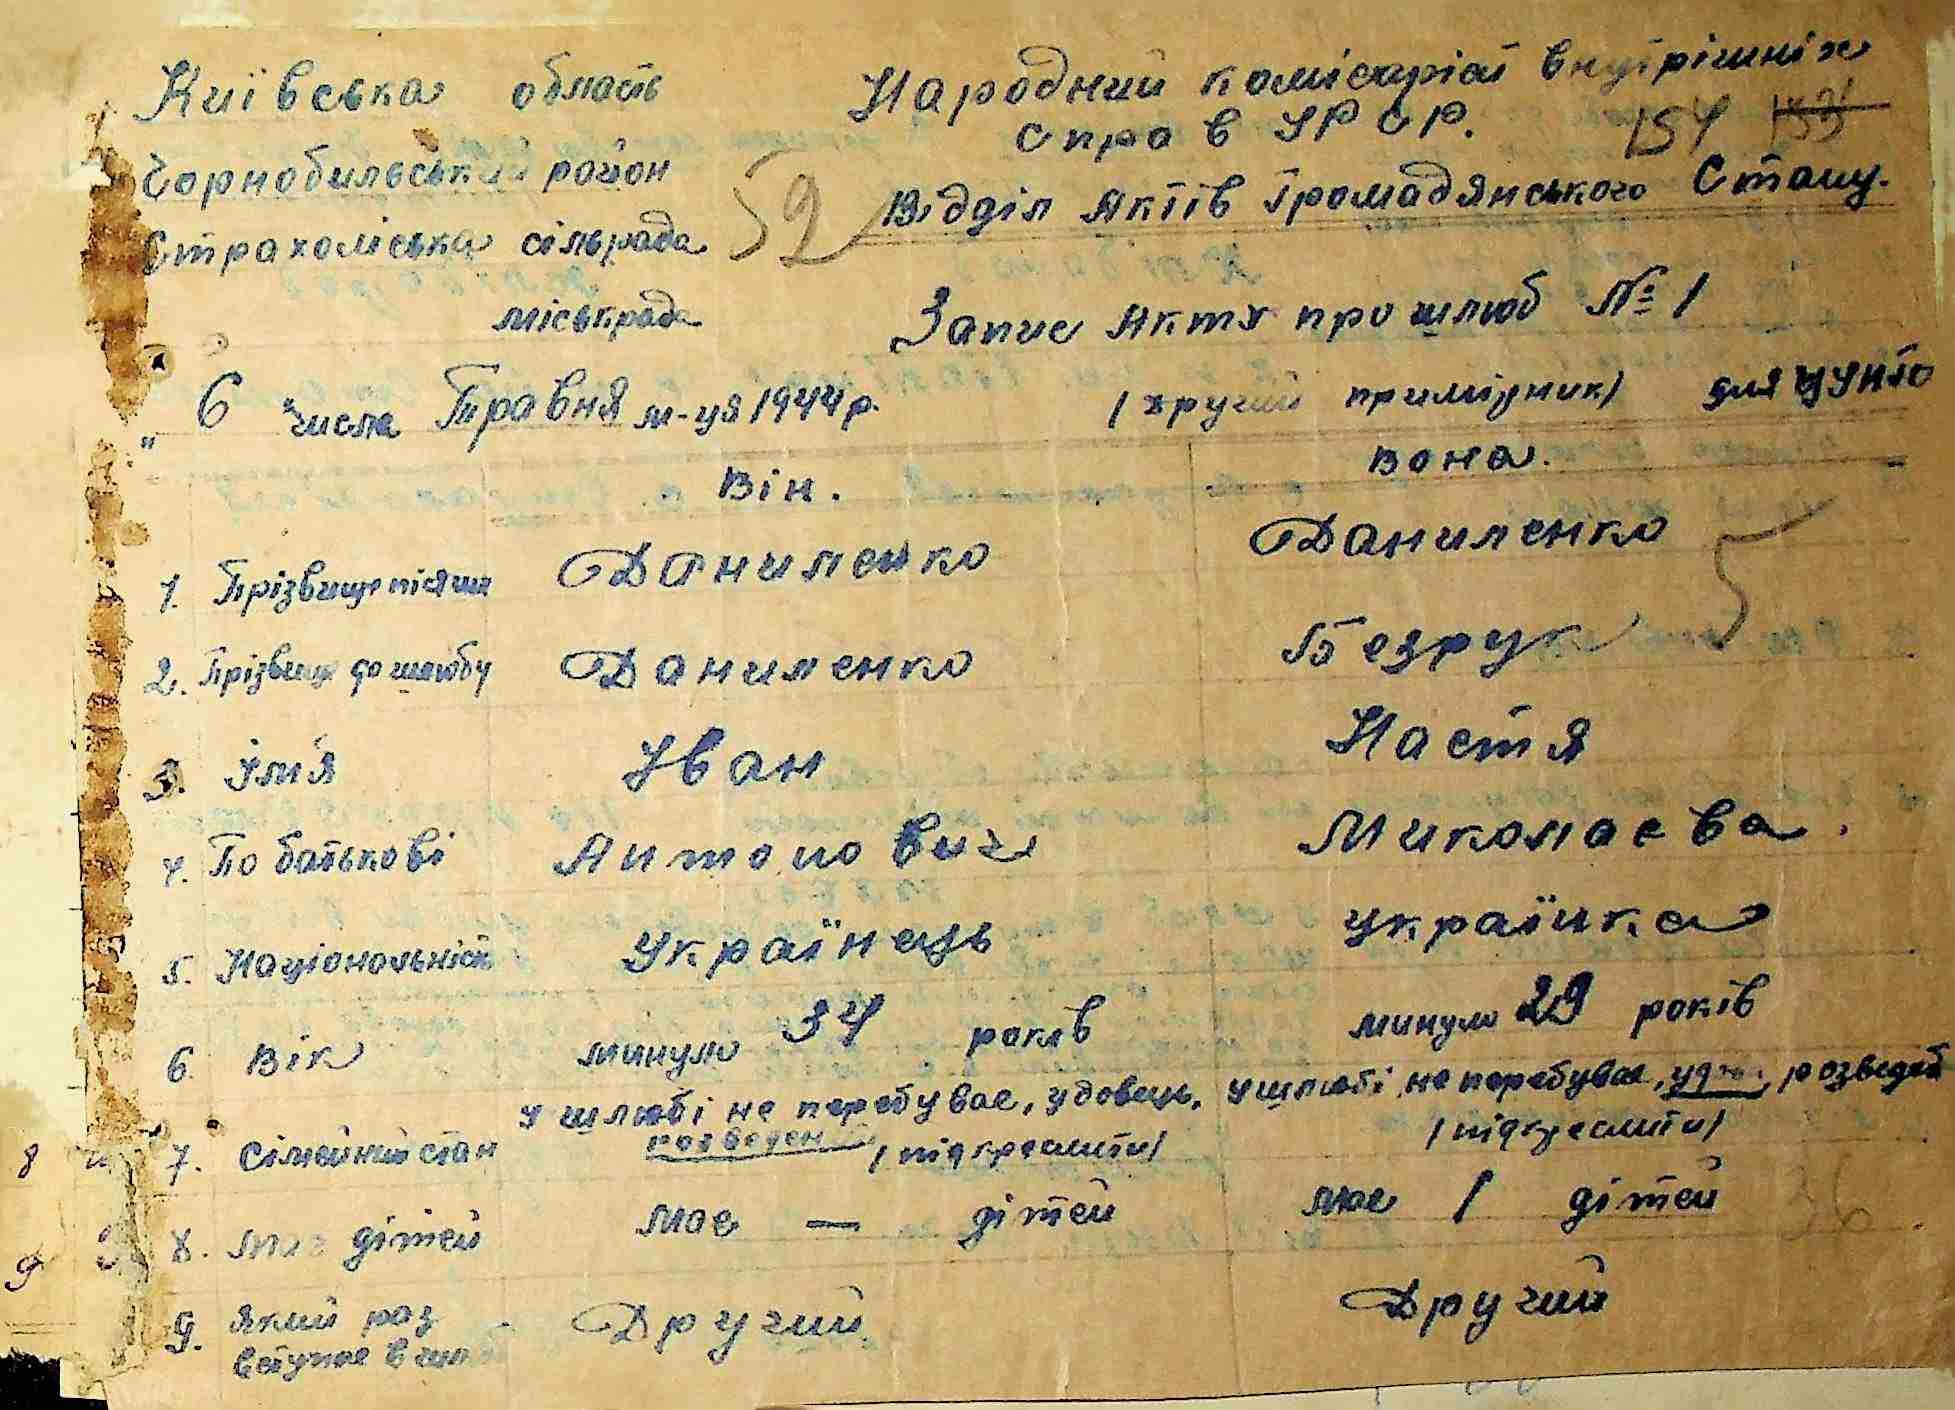 Київська область
Чорнобильський район
Страхоліська сільрада
міськрада
Народний комісаріат внутрішніх
справ УРСР.
154 153
52
Відділ Актів Громадянського Стану.
Запис Акту про шлюб № 1
"6" числа Травня м-ця 1944 р.
/другий примірник/ для ЦУНГО
Він. Вона.
1. Прізвище Даниленко Даниленко
5
2. Прізвище до шлюбу Даниленко Безрук
3. Ім'я Іван Настя
4. По батькові Антонович Миколаєва.
5. Національність Українець Українка
6. Вік минуло 34 років минуло 29 років
7. Сімейний стан у шлюбі не перебуває, удовець, розведений /підкреслити/ у шлюбі не перебуває, удова, розведен /підкреслити/
8. має дітей має — дітей має 1 дітей
36
9. Який раз вступає в шлюб Другий Другий
8
9